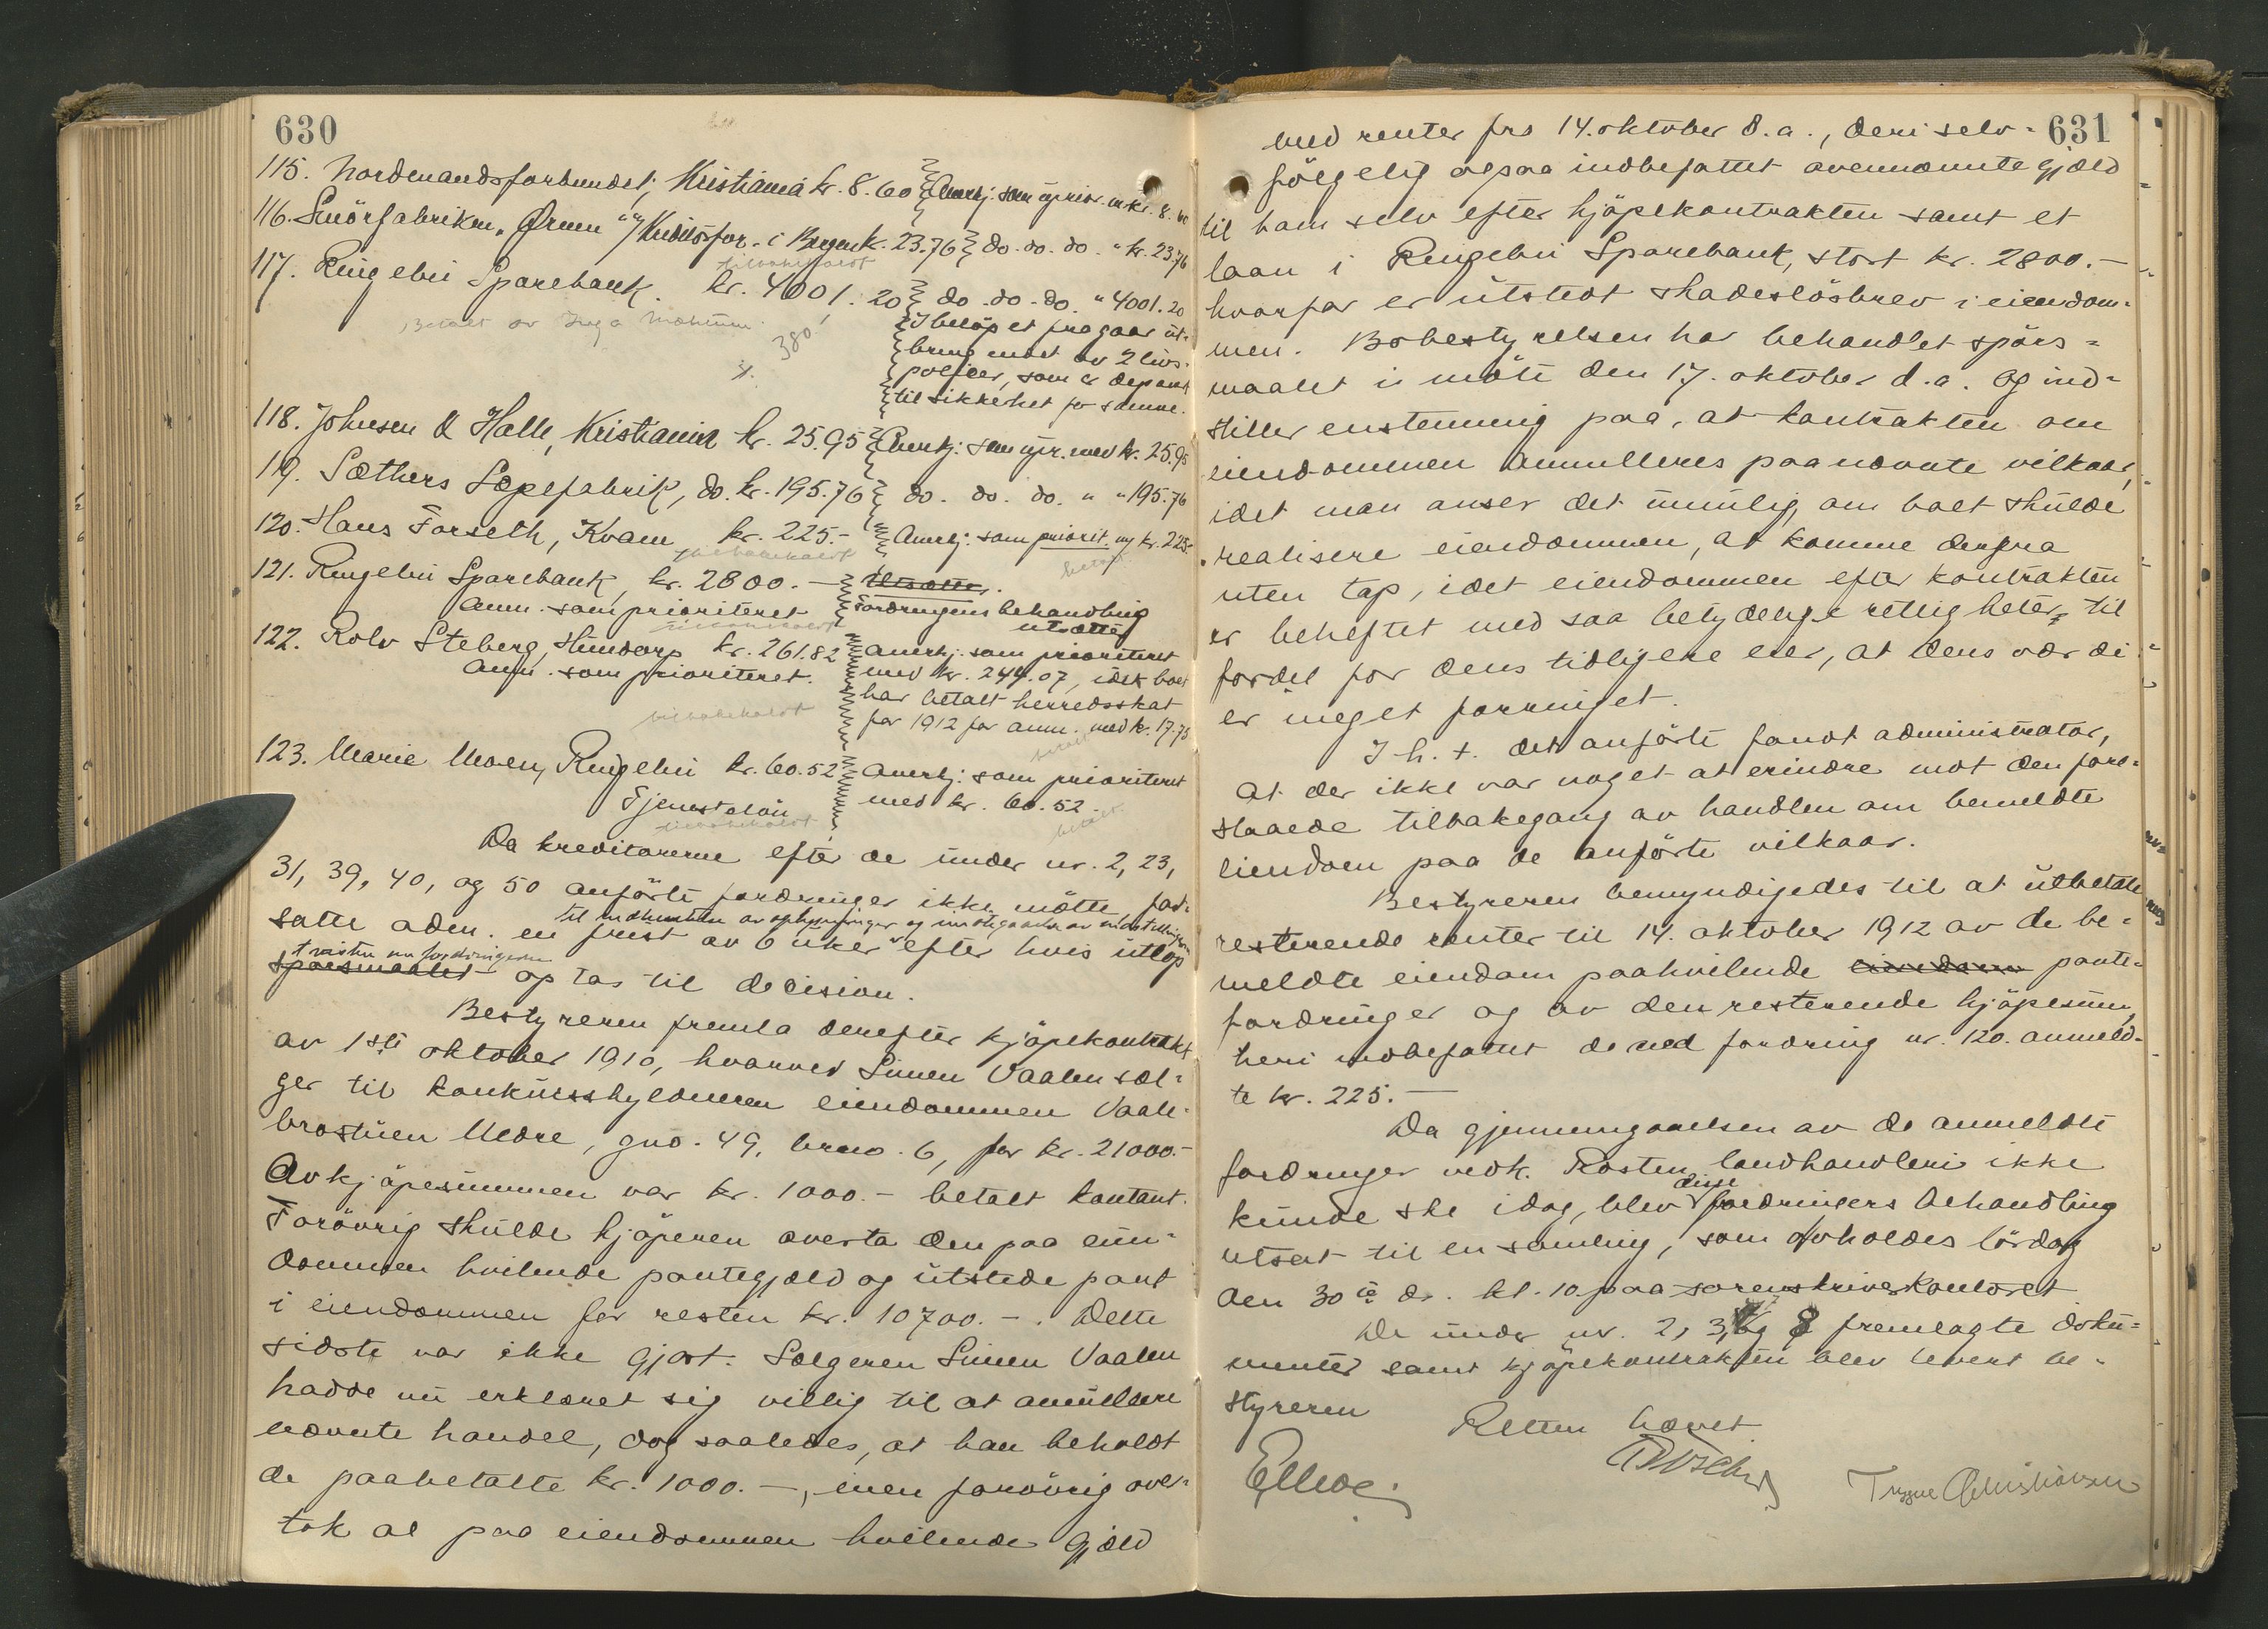 630
115. Nordmandsforbundet, Kristiania kr. 8.60 Anerkj. som uprior. m. kr. 8.60
116. Smörfabriken "Ørnen" v/ Kreditorfor. i Bergen k. 23.76 do. do. do. " kr. 23.76
tilbakekaldt
117. Ringebu Sparebank. kr. 4001.20 do. do. do. " 4001.20
Betalt av Inga
380
I beløpet fragaar ut-
bringendet av 2 livs-
policer, som er depon.
til sikkerhet for samme.
118. Johnsen & Halle, Kristiania kr. 25.95 Anerkj: som upr. med kr. 25.95
119. Sæthers Sæpefabrik, do. kr. 195.76 do. do. do. " " 195.76
120. Hans Forseth, Kvam kr. 225.- Anerkj: som priorit. m/ kr. 225.-
tilbakekaldt betalt
121. Ringebu Sparebank, kr. 2800.- Utsættes.
anm. som prioriteret Fordringens behandling
utsættes
tilbakekaldt
122. Rolv Steberg, Hundorp kr. 261.82 anerkj. som prioriteret
anm. som prioriteret. med kr. 244.07, idet boet
har betalt herredsskat
for 1912 for anm. med kr. 17.75
tilbakekaldt betalt
123. Marie Moen, Ringebu kr. 60.52 anerkj: som prioriteret
Tjenestelön med kr. 60.52.
tilbakekaldt betalt
Da kreditorerne efter de under nr. 2, 23,
31, 39, 40, og 50 anförte fordringer ikke mötte, fad-
til indhentelse av oplysninger og imötegaaelse av indstillingen
satte adm. en frist av 6 uker efter hvis utlöp
tvisten om fordringerne
spörsmaalet optas til decision.
Bestyreren fremla derefter kjöpekontrakt
av 1ste oktober 1910, hvorved Simen Vaalen sæl-
ger til konkursskyldneren eiendommen Vaale-
brostuen Nedre, gno. 49, brno. 6, for kr. 21000.-
Av kjöpesummen var kr. 1000.- betalt kontant.
Forövrig skulde kjöperen overta den paa eien-
dommen hvilende pantegjæld og utstede pant
i eiendommen for resten kr. 10700.-. Dette
sidste var ikke gjort. Sælgeren Simen Vaalen
hadde nu erklæret sig villig til at annullere
nævnte handel, dog saaledes, at han beholdt
de paabetalte kr. 1000.-, men forövrig over-
tok al paa eiendommen hvilende gjæld
631
med renter fra 14. oktober d.a., deri selv-
følgelig ogsaa indbefattet ovennævnte gjæld
til ham selv efter kjöpekontrakten samt et
laan i Ringebu Sparebank, stort kr. 2800.-
hvorfor er utstedt skadeslösbrev i eiendom-
men. Bobestyrelsen har behandlet spörs-
maalet i möte den 17. oktober d.a. og ind-
stiller enstemmig paa, at kontrakten om
eiendommen annulleres paa nævnte vilkaar,
idet man anser det umulig, om boet skulde
realisere eiendommen, at komme derfra
uten tap, idet eiendommen efter kontrakten
er beheftet med saa betydelige rettigheter til
fordel for dens tidligere eier, at dens værdi
er meget forringet.
I h. t. det anförte fandt administrator,
at der ikke var noget at erindre mot den fore-
slaaede tilbakegang av handlen om bemeldte
eiendom paa de anförte vilkaar.
Bestyreren bemyndigedes til at utbetale
resterende renter til 14. oktober 1912 av de be-
meldte eiendom paahvilende eiendom pante-
fordringer og av den resterende kjöpesum,
heri indbefattet de ved fordring nr. 120. anmeld-
te kr. 225.-
Da gjennemgaaelsen av de anmeldte
fordringer vedk. Rosten landhandleri ikke
disse
kunde ske idag, blev fordringers behandling
utsat til en samling, som avholdes lördag
den 30te ds. kl. 10 paa sorenskriverkontoret
De under nr. 2, 3, og 8 fremlagte doku-
menter samt kjöpekontrakten blev levert be-
styreren
Retten hævet.
Trygve Christiansen